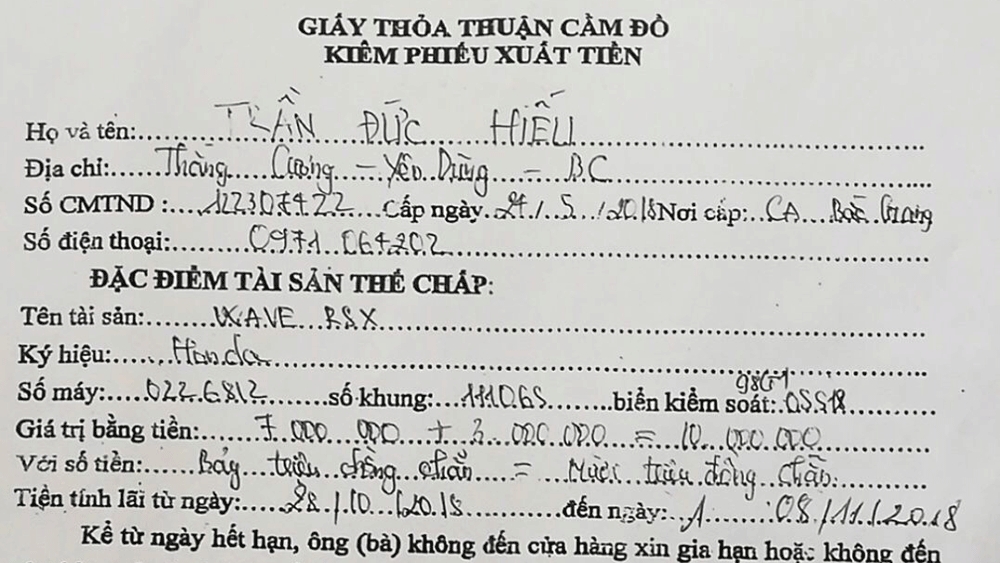 GIẤY THỎA THUẬN CẦM ĐỒ
KIÊM PHIẾU XUẤT TIỀN
Họ và tên: TRẦN ĐỨC HIẾU
Địa chỉ: Thắng Cương - Yên Dũng - BG
Số CMTND : 122307422 Cấp ngày 24/5/2018 Nơi cấp: CA Bắc Giang
Số điện thoại: 0971 064202
ĐẶC ĐIỂM TÀI SẢN THẾ CHẤP:
Tên tài sản: WAVE RSX
Ký hiệu: Honda
Số máy: 0226812 số khung: 111065 biển kiểm soát: 05518
Giá trị bằng tiền: 7.000.000 + 3.000.000 = 10.000.000
Với số tiền: Bảy triệu đồng chẵn = Mười triệu đồng chẵn
Tiền tính lãi từ ngày: 28/10/2018 đến ngày: 08/11/2018
Kể từ ngày hết hạn, ông (bà) không đến cửa hàng xin gia hạn hoặc không đến